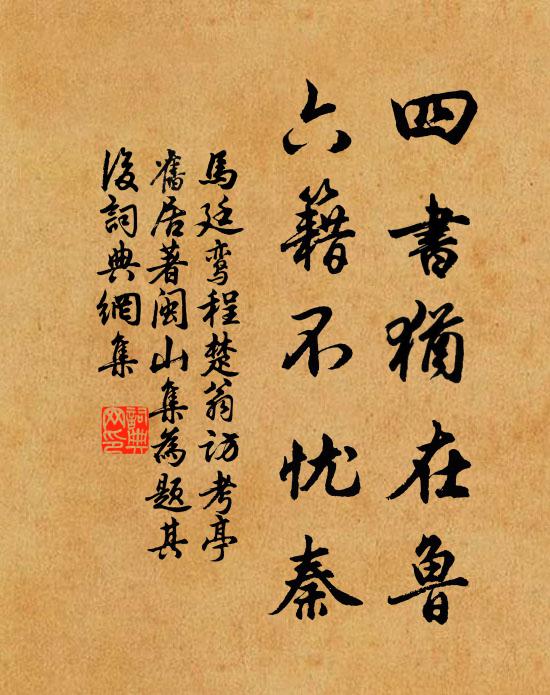 四書猶在魯
六籍不忧秦
馬廷鸾程楚翁访考亭
舊居著闽山集為題其
後詞典網集
詞典
网印